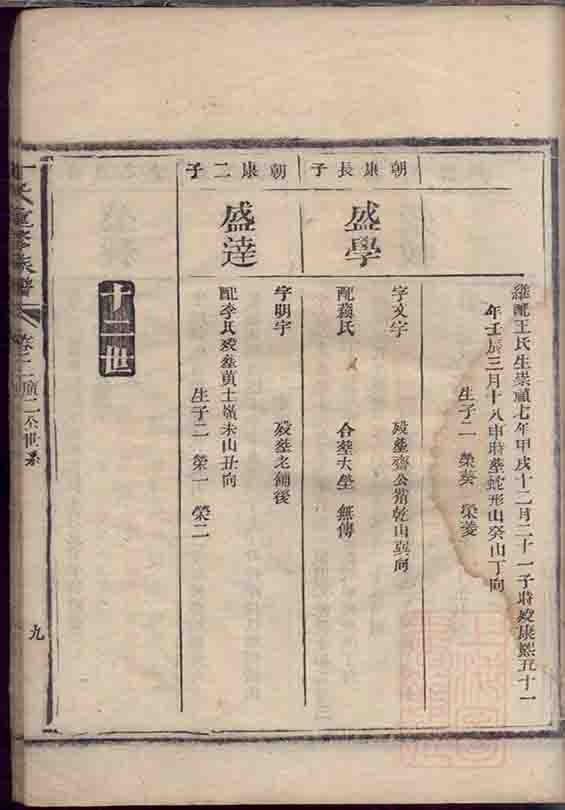 繼配王氏生崇禎七年甲戌十二月二十一子時歿康熙五十一
年壬辰三月十八申時塟蛇形山癸山丁向
生子二 榮葵 榮菱
朝康長子
盛學
字文宇 歿塟齊公嘴乾山巽向
配蘇氏 合塟大塋 無傳
朝康二子
盛達
字明宇 歿塟老鋪後
配李氏歿塟黃土嶺未山丑向
生子二 榮一 榮二
十二世
氏重修族譜 卷之二廣二公世系 九